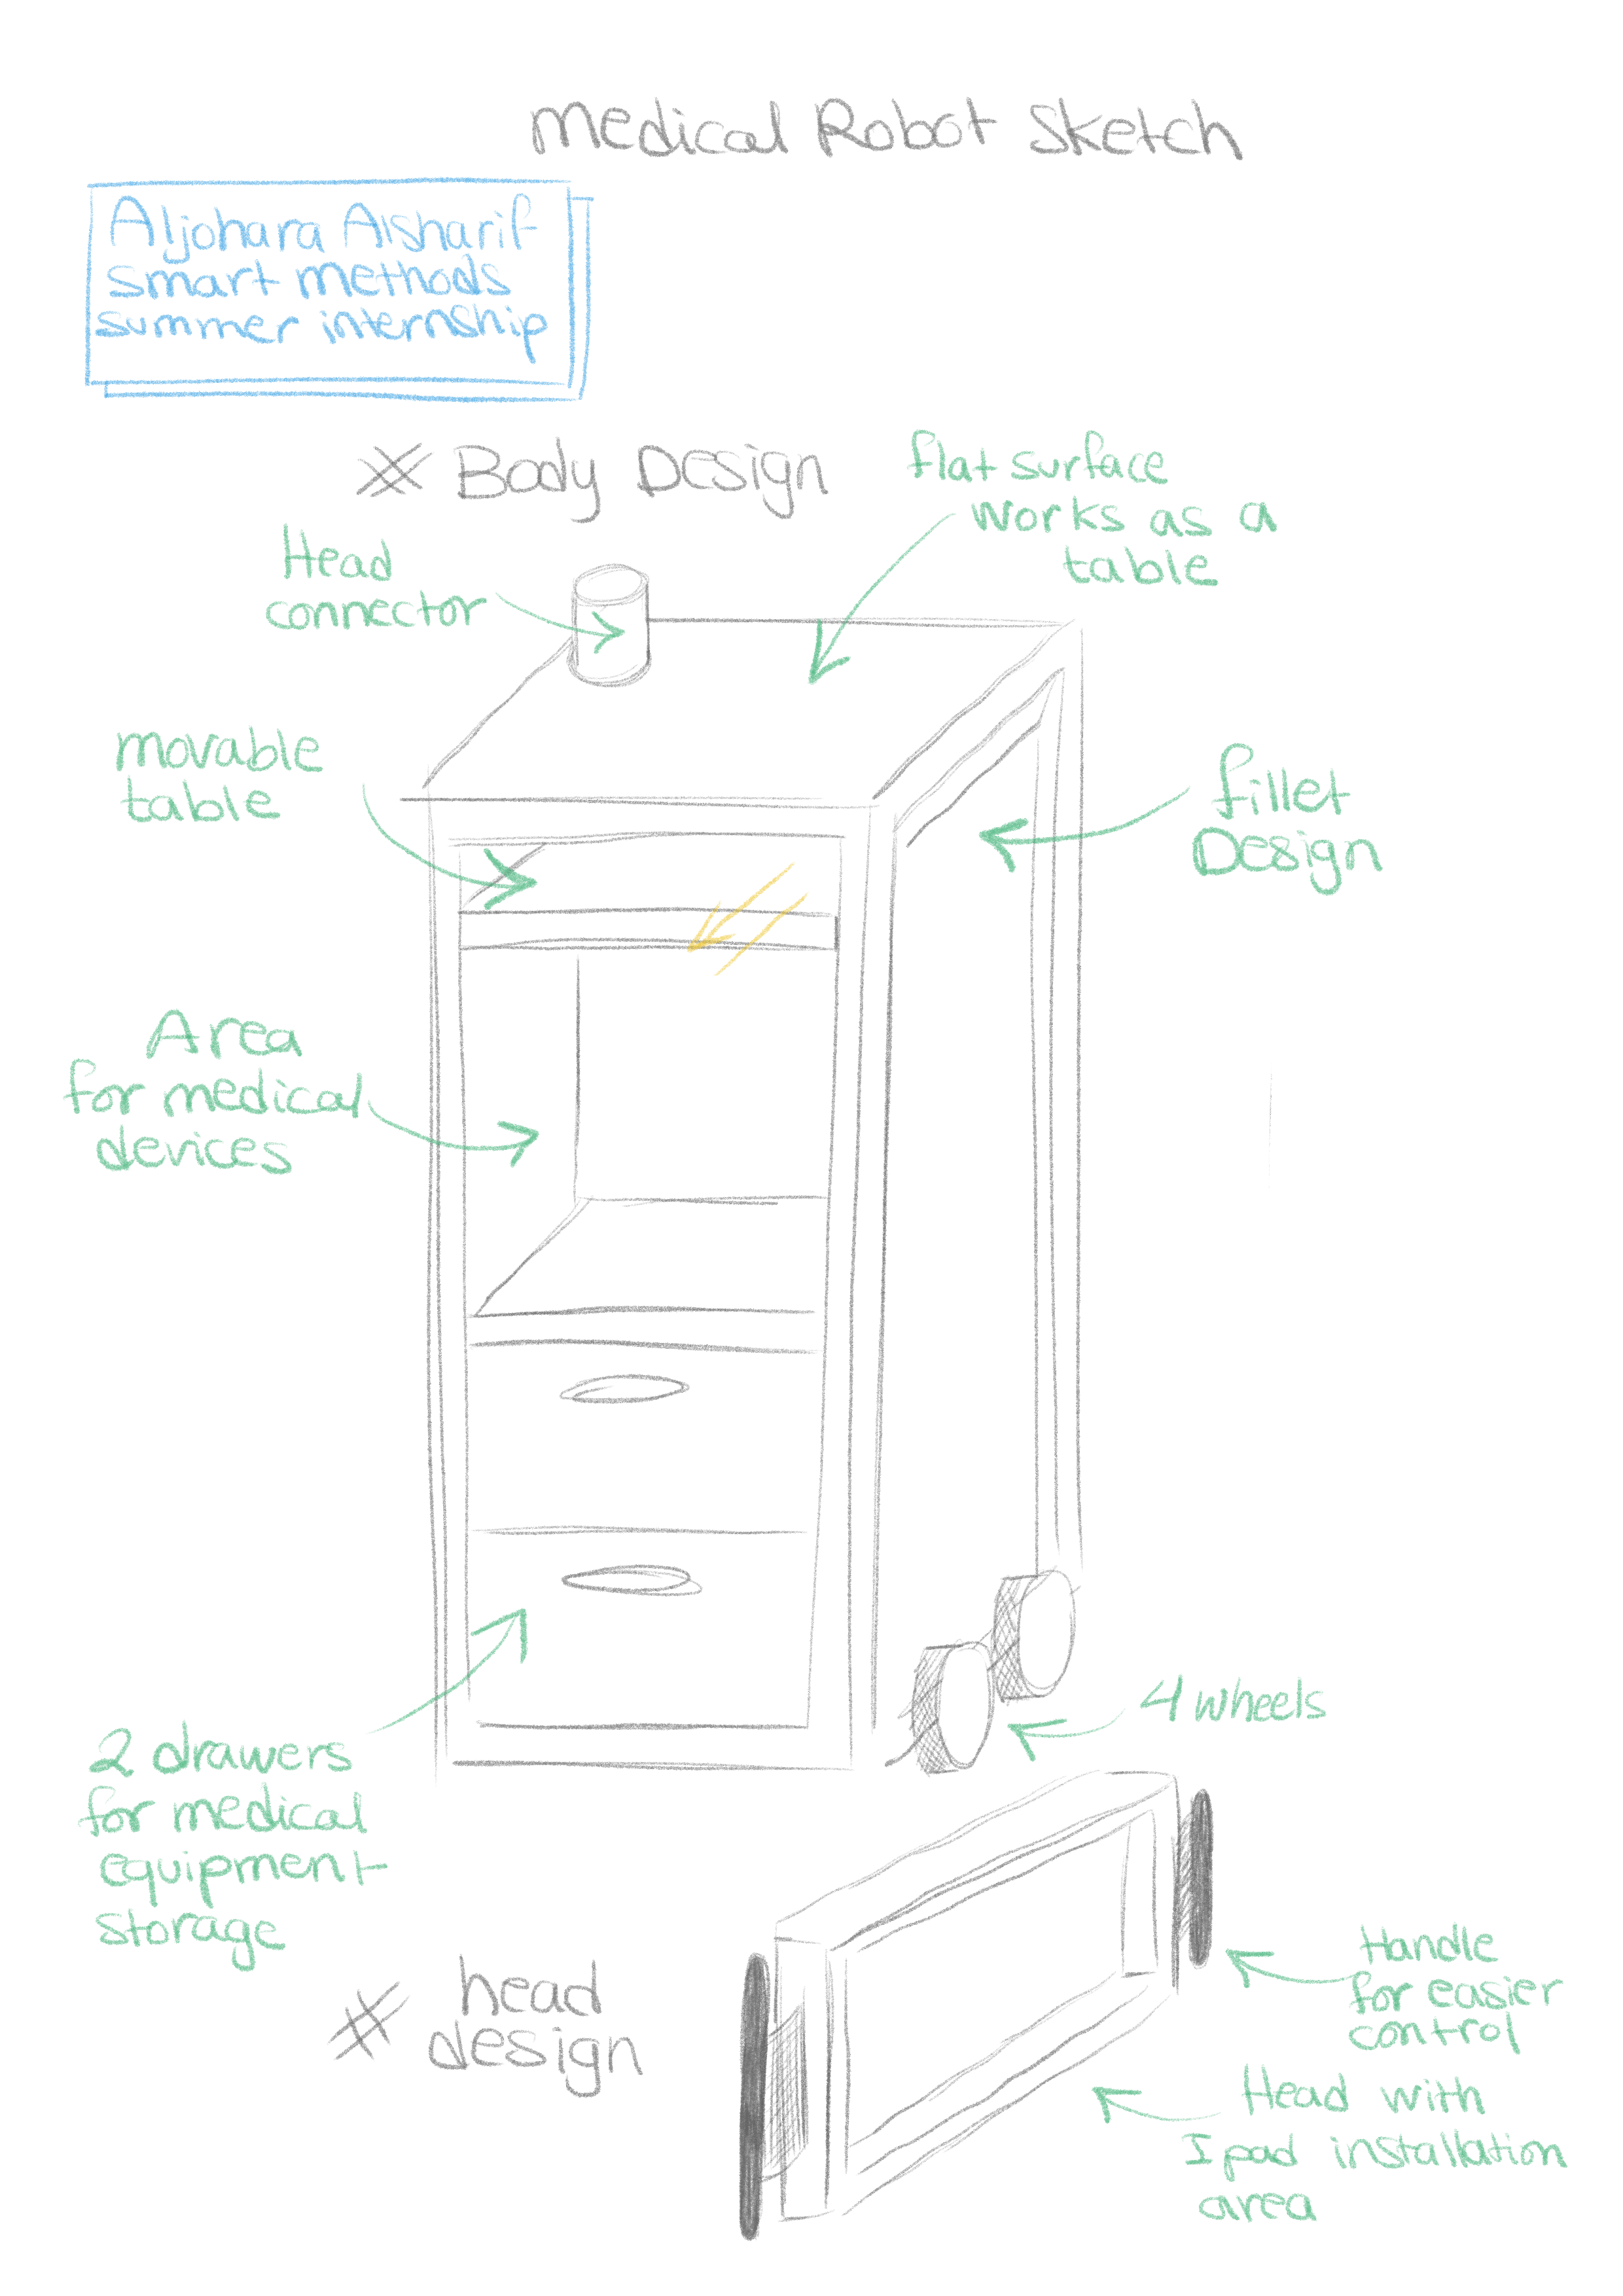 Medical Robot Sketch
Aljohara Alsharif
smart methods
summer internship
Body Design
flat surface
works as a
table
Head
connector
movable
table
fillet
Design
Area
for medical
devices
4 wheels
2 drawers
for medical
equipment
storage
head
design
Handle
for easier
control
Head with
Ipad installation
area